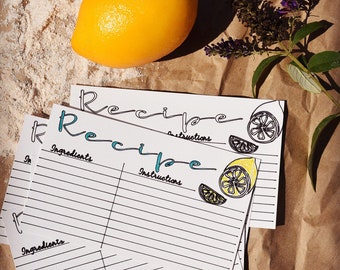 Recipe
Instructions
Recipe
Ingredients
Instructions
Ingredients